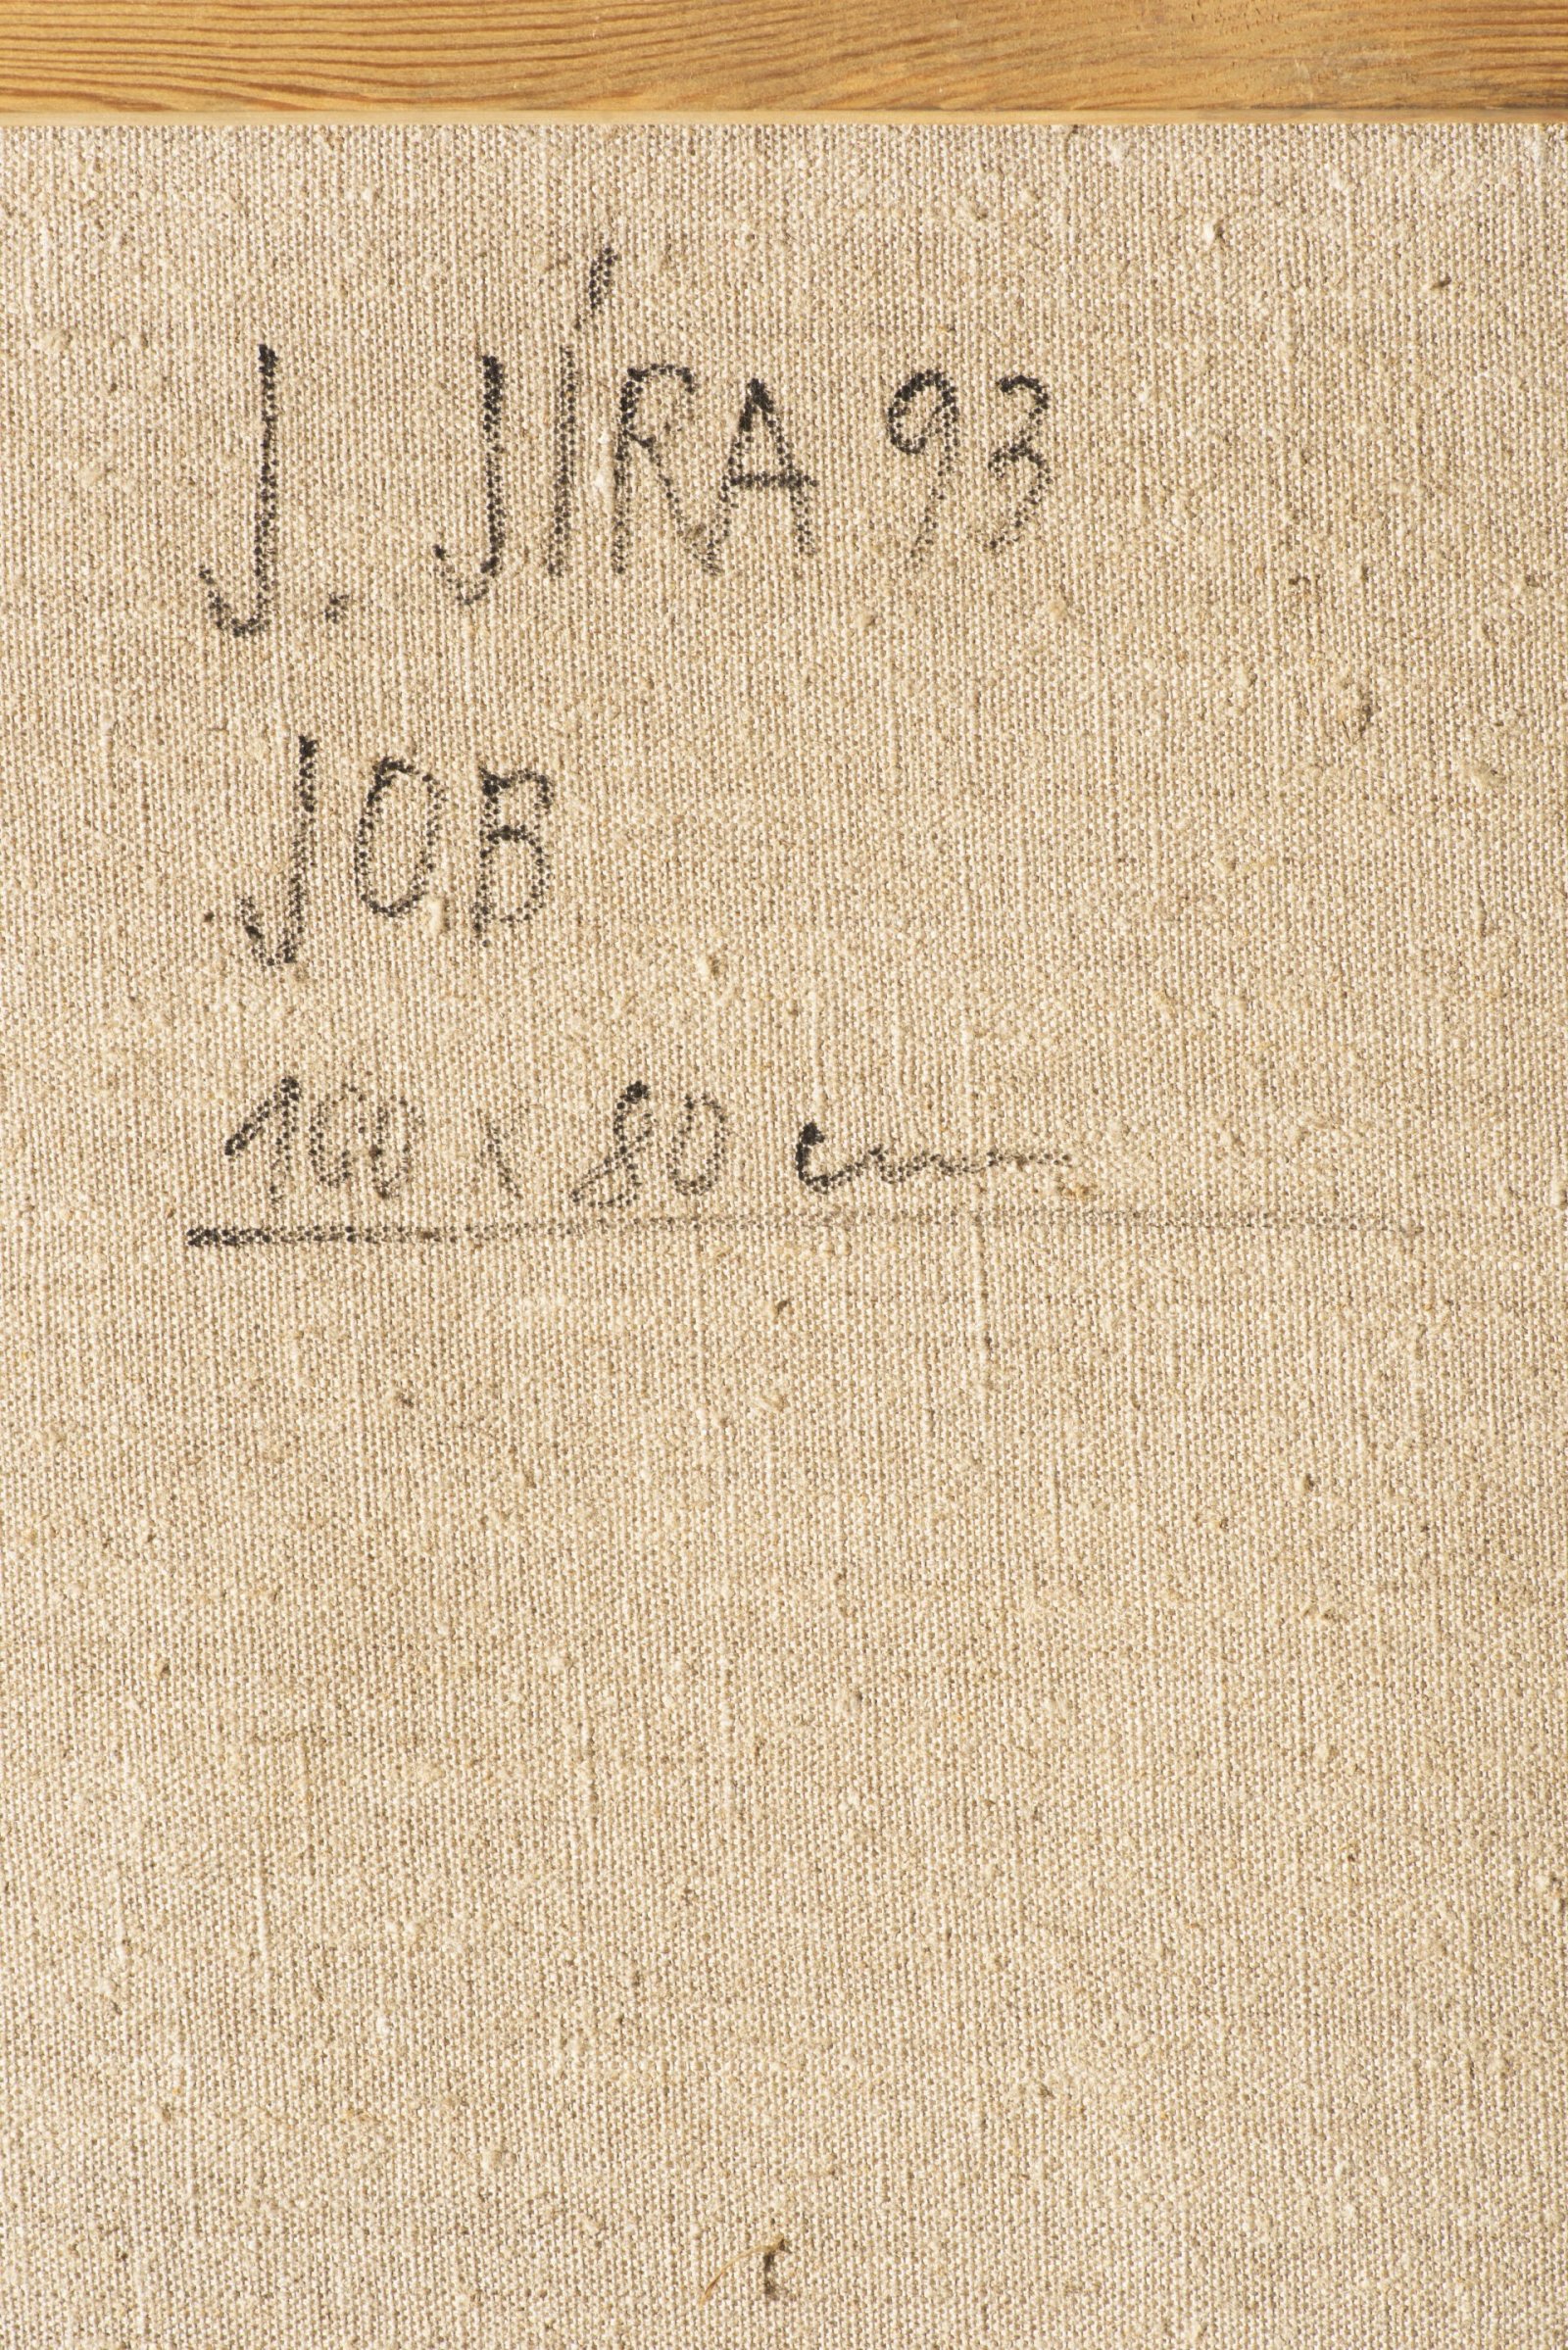 J. JÍRA 93
JOB
100 x 80 cm